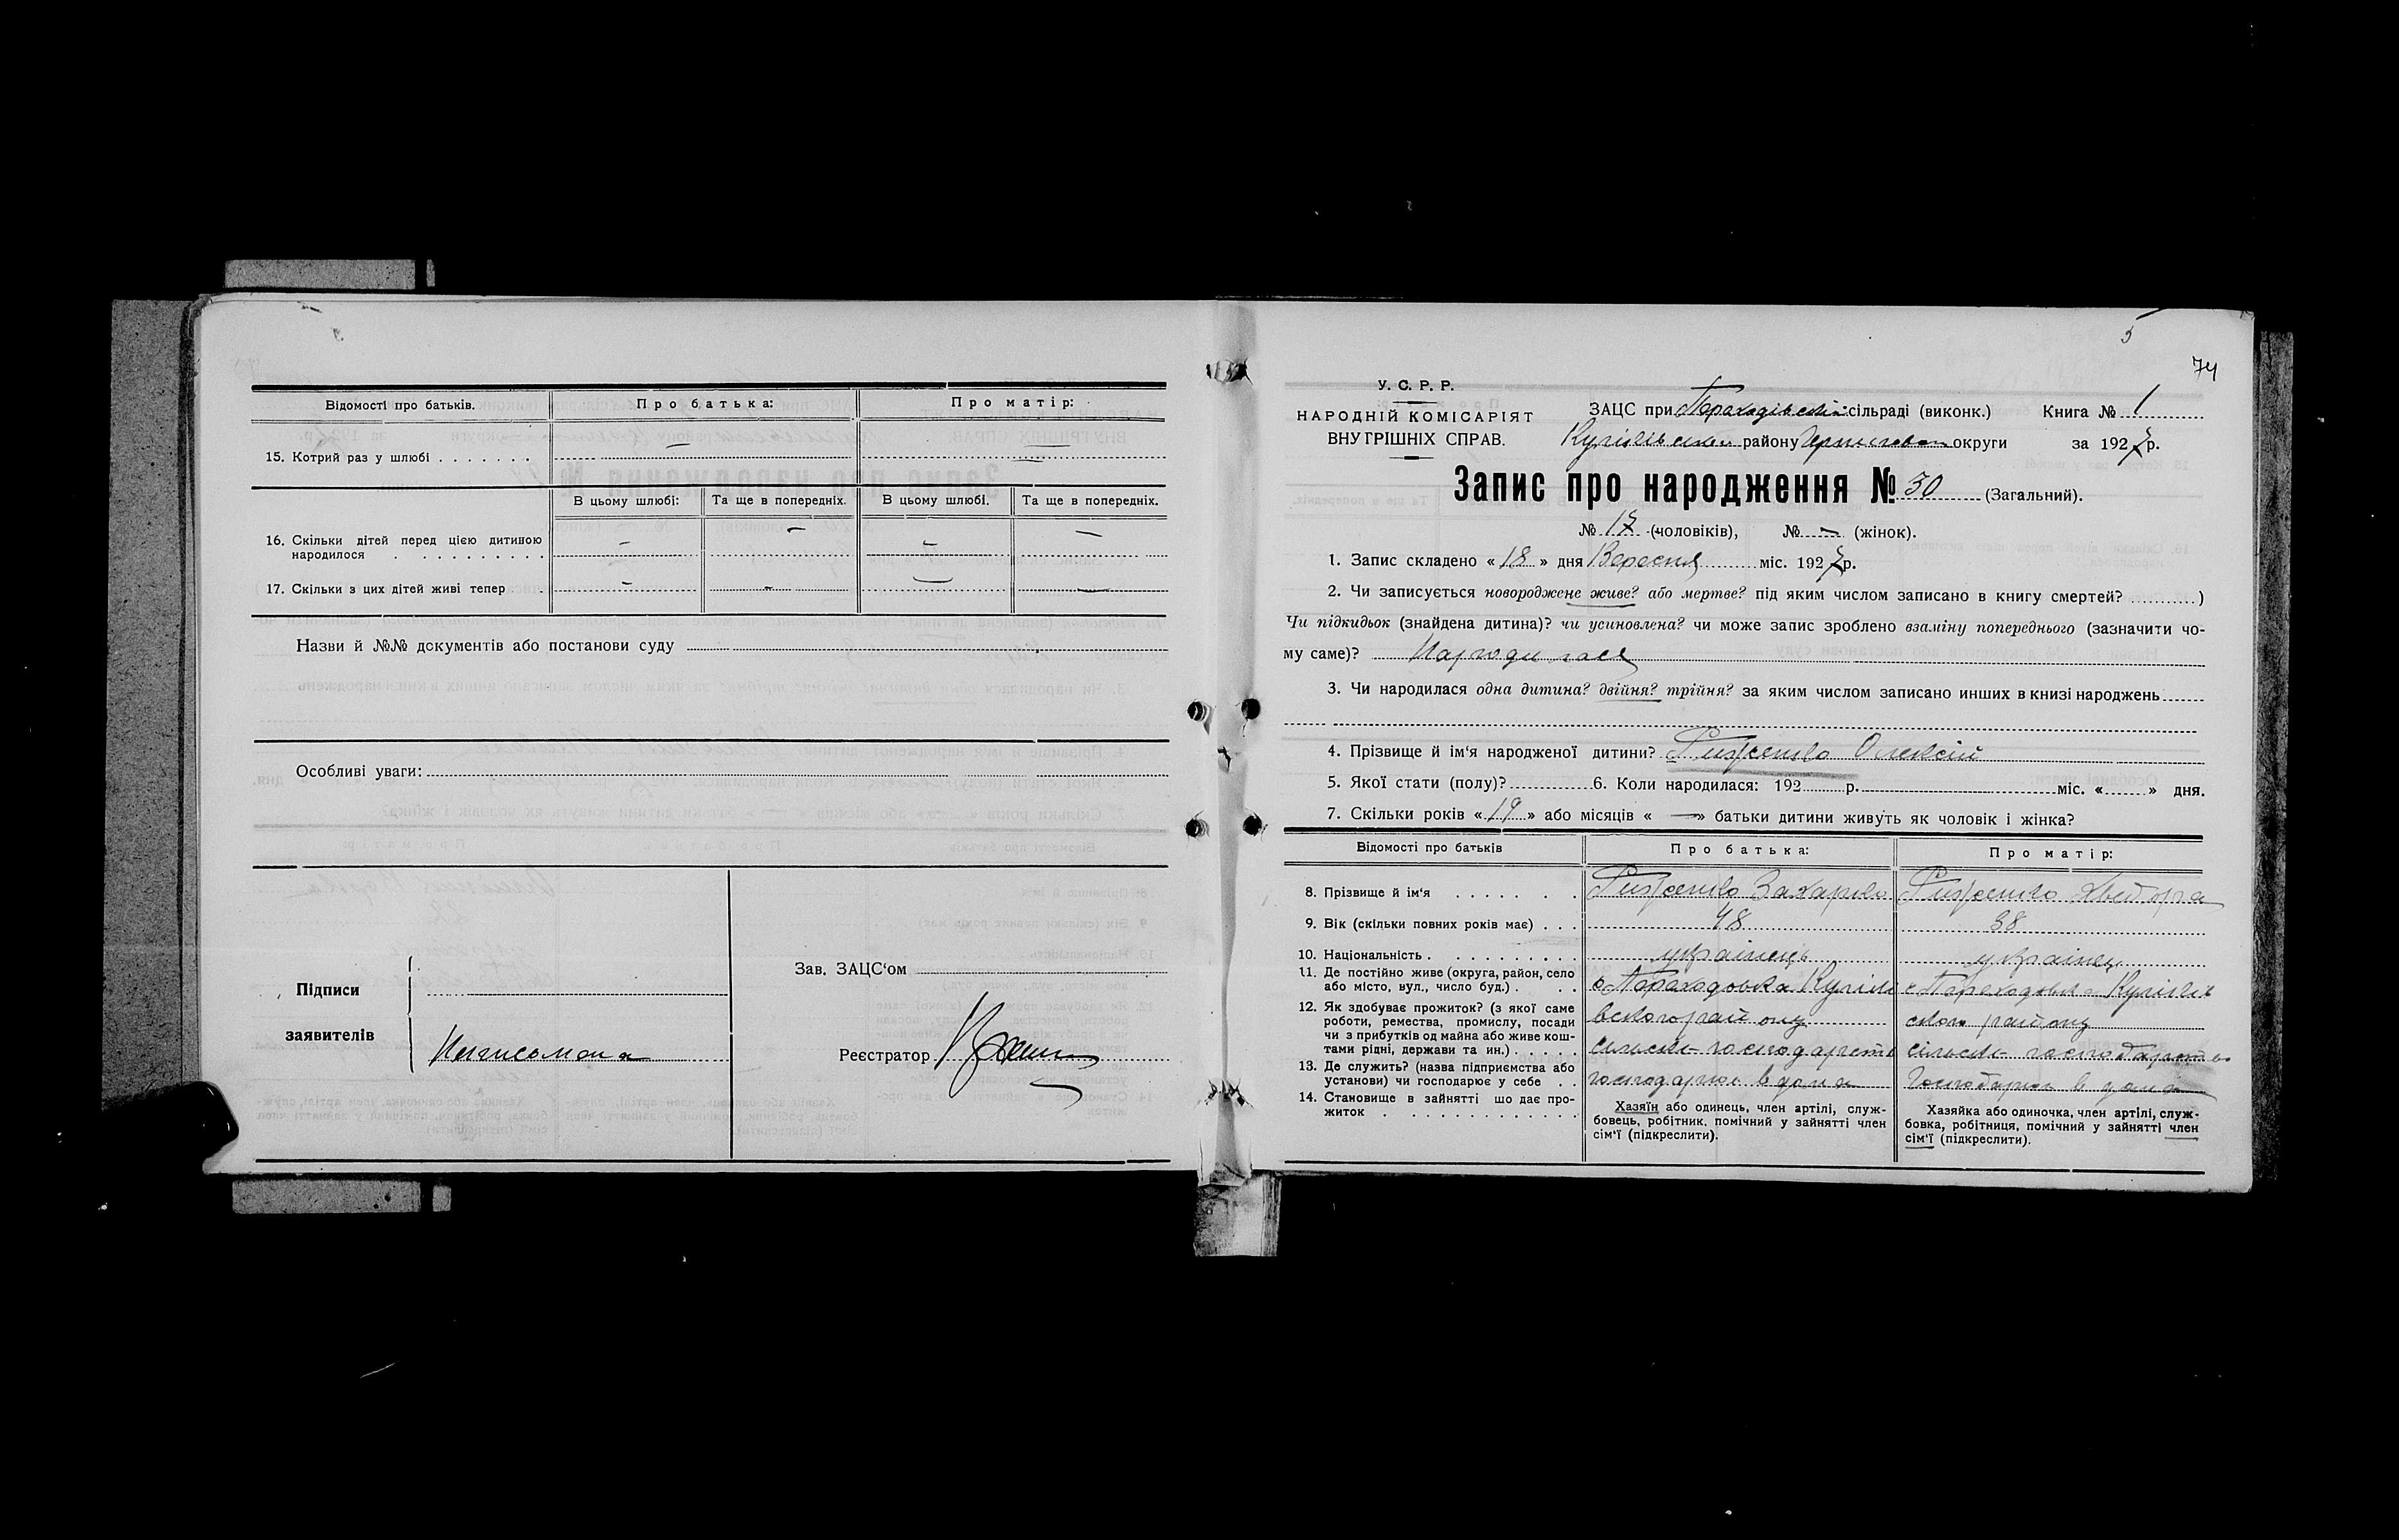 Відомості про батьків.
Про батька:
Про матір:
15. Котрий раз у шлюбі . . . . . . . — —
В цьому шлюбі: Та ще в попередніх. В цьому шлюбі. Та ще в попередніх.
16. Скільки дітей перед цією дитиною
народилося . . . . . . . . . . — — — —
17. Скільки з цих дітей живі тепер . — — — —
Назви й №№ документів або постанови суду
Особливі уваги:
Підписи
заявителів
Неписьмона
Зав. ЗАЦС‘ом
Реєстратор
5
74
У. С. Р. Р.
НАРОДНІЙ КОМІСАРІЯТ
ВНУТРІШНІХ СПРАВ.
ЗАЦС при сільраді (виконк.) Книга № 1
району округи за 1927 р.
Запис про народження № 30 (Загальний).
№ 17 (чоловіків), № — (жінок).
1. Запис складено « 18 » дня Вересня міс. 1927 р.
2. Чи записується новороджене живе? або мертве? під яким числом записано в книгу смертей? )
Чи підкидьок (знайдена дитина)? чи усиновлена? чи може запис зроблено взаміну попереднього (зазначити чо-
му саме)? Народилася
3. Чи народилася одна дитина? двійня? трійня? за яким числом записано инших в книзі народжень
4. Прізвище й ім‘я народженої дитини? Олексій
5. Якої стати (полу)? 6. Коли народилася: 192 р. міс. « » дня.
7. Скільки років « 19 » або місяців « — » батьки дитини живуть як чоловік і жінка?
Відомості про батьків
Про батька:
Про матір:
8. Прізвище й ім‘я . . . . . . . Захарко Хведора
9. Вік (скільки повних років має) . . . 48 38
10. Національність . . . . . . . . . . українець українец
11. Де постійно живе (округа, район, село
або місто, вул., число буд.) . . . .
12. Як здобуває прожиток? (з якої саме
роботи, ремества, промислу, посади
чи з прибутків од майна або живе кош-
тами рідні, держави та ин.) . . . . .
13. Де служить? (назва підприємства або
установи) чи господарює у себе . .
14. Становище в зайнятті що дає про-
житок . . . . . . . . . . . . .
с Пароходовка
вського району
сільське господарств
господарює вдома
Хазяїн або одинець, член артілі, служ-
бовець, робітник, помічний у зайнятті член
сім‘ї (підкреслити).
с Пароходовка
ського району
сільське господарство
Господарює в дома
Хазяйка або одиночка, член артілі, служ-
бовка, робітниця, помічний у зайнятті член
сім‘ї (підкреслити).